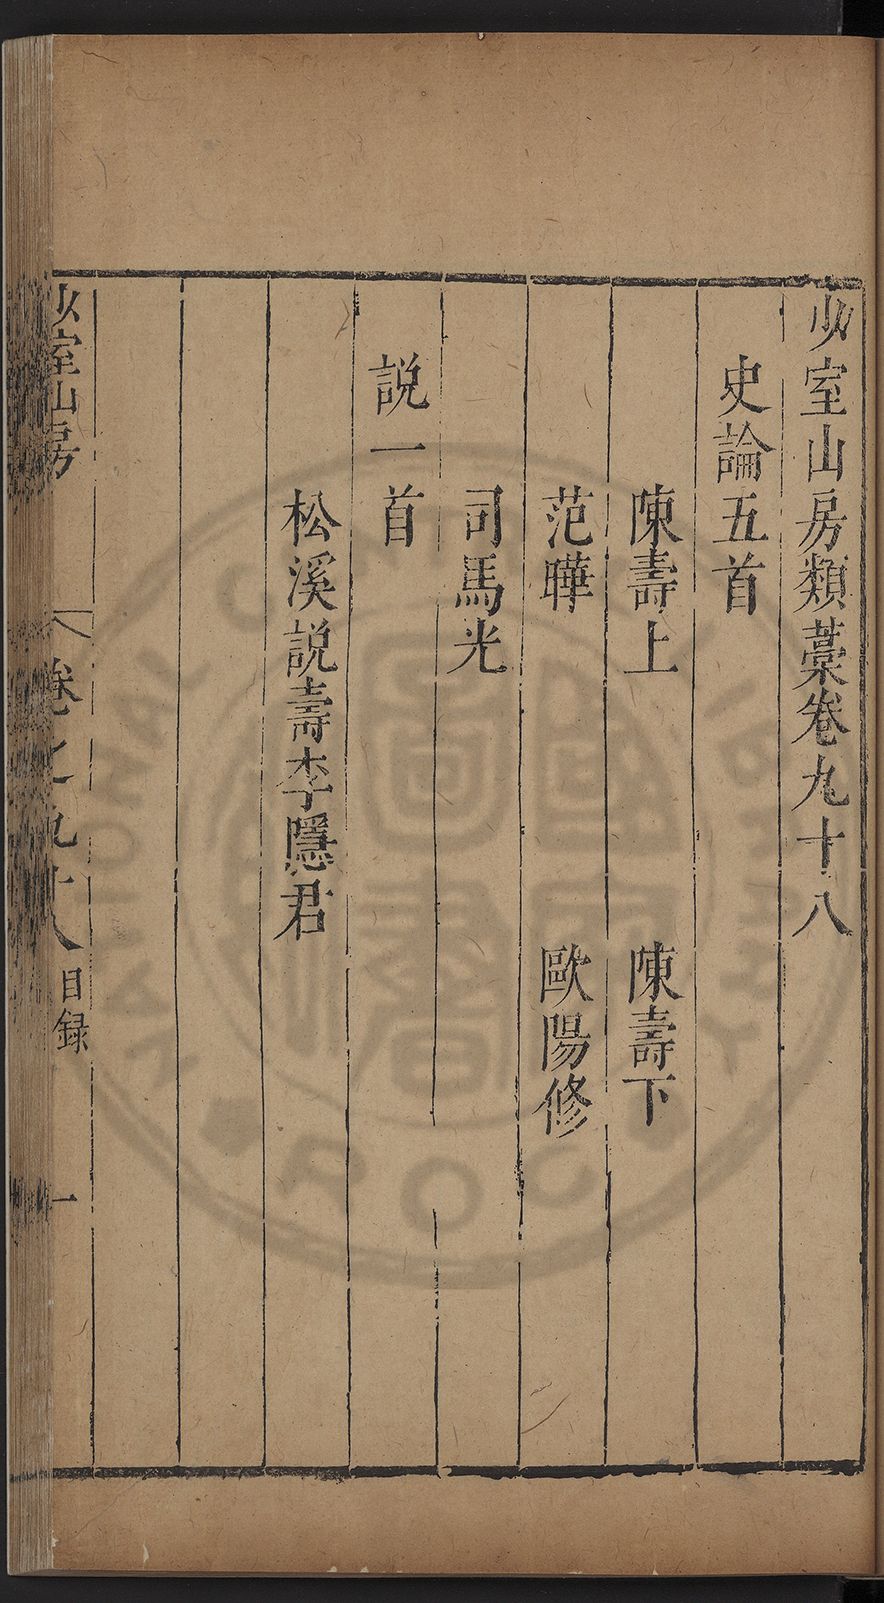 少室山房類藳卷九十八
史論五首
陳壽上 陳壽下
范曄 歐陽修
司馬光
説一首
松溪説壽李隱君
少室山房 卷之九十八 目録 一